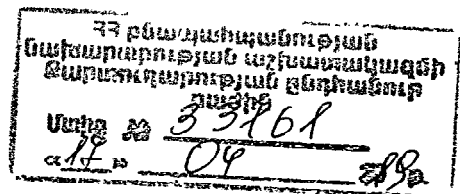 ՀՀ բնապահպանության
նախարարության աշխատակազմի
Քարտուղարության ընդհանուր
բաժին
Մտից № 33161
«17» 04 19